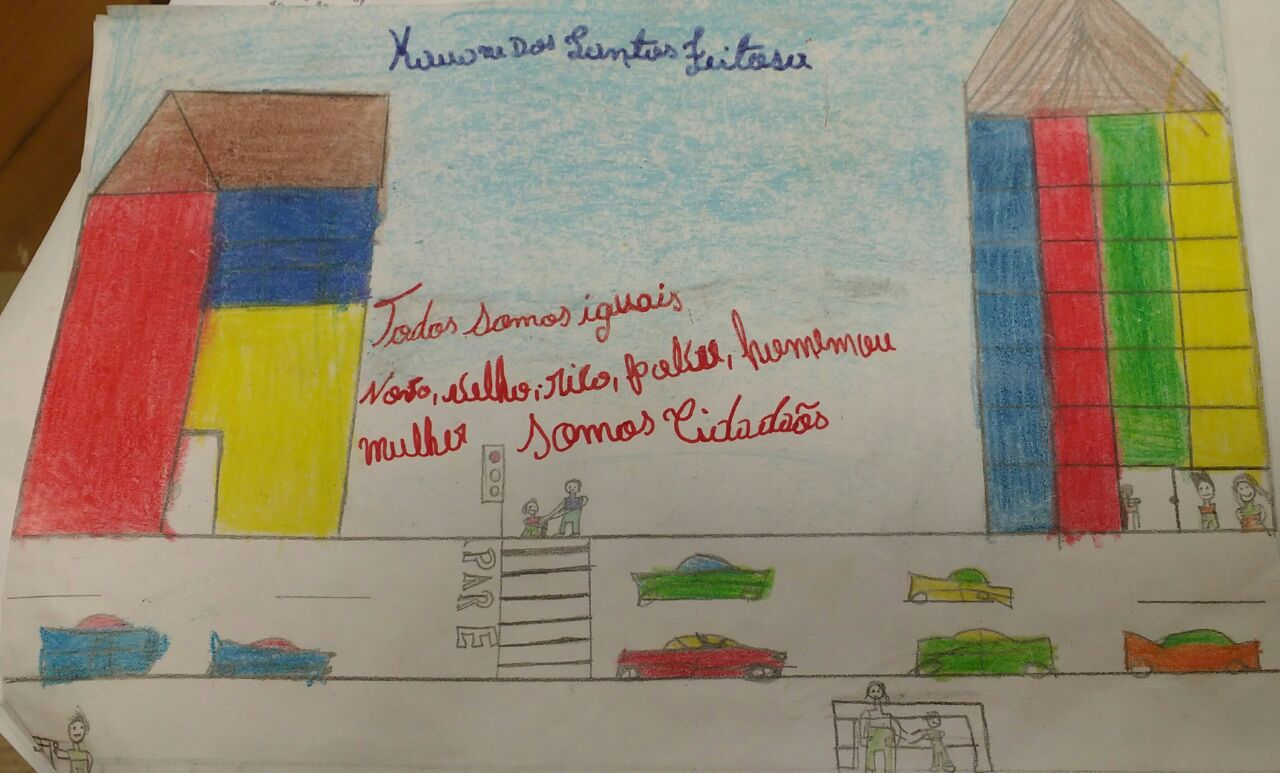 dos Santos Feitosa
Todos somos iguais
Novo, velho, rico, pobre, homem ou
mulher somos Cidadaõs
PARE